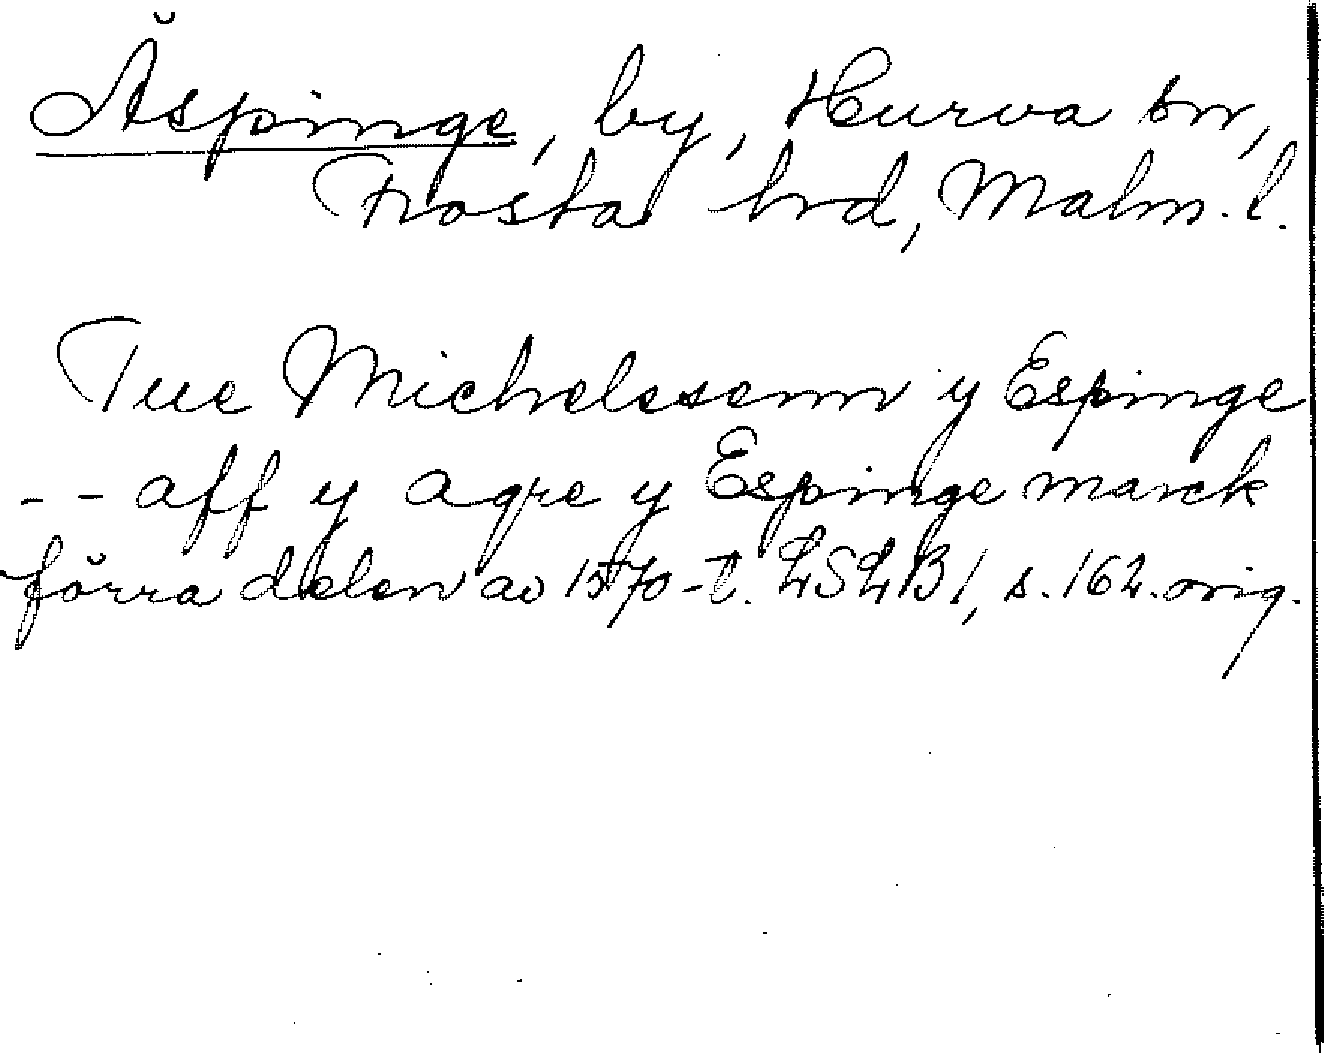 Äspinge, by, Hurva sn,
Frosta hrd, Malm. l.
Tue Michelssenn y Espinge
- - aff y agre y Espinge marck
förra delen av 1570-t. LSLB 1, s. 162. orig.